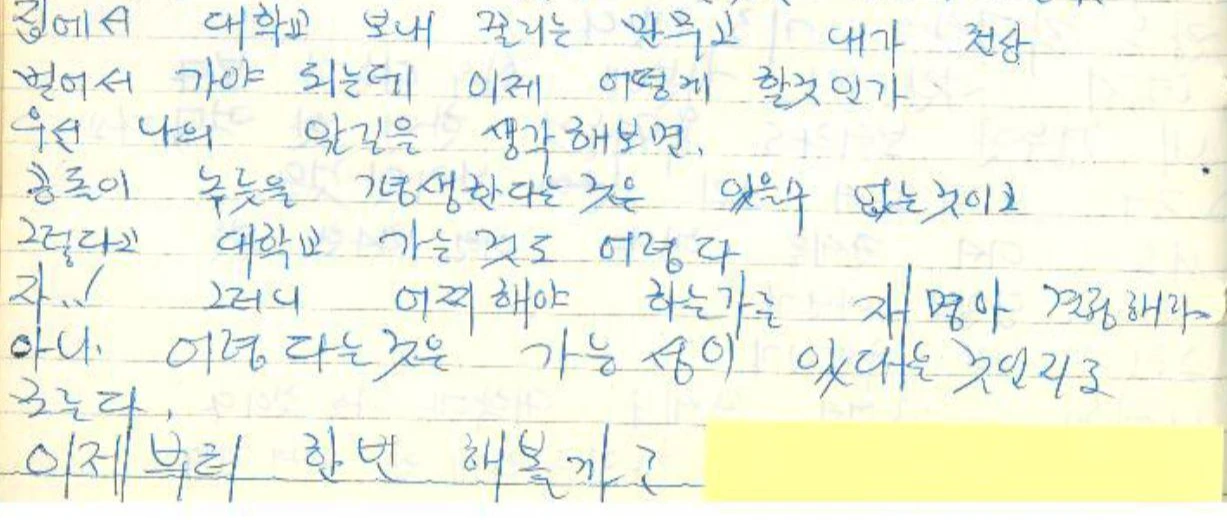 집에서 대학교 보내 줄리는 만무고 내가 전상
벌어서 가야 되는데 이제 어떻게 할것인가
우선 나의 앞길을 생각해보면.
공돌이 노릇을 평생한다는것은 있을수 없는것이고
그렇다고 대학교 가는것도 어렵다
자..! 그러니 어찌해야 하는가는 자명아 결정해라
아니. 어렵다는것은 가능성이 있다는것인지도
모른다.
이제부터 한번 해볼까고